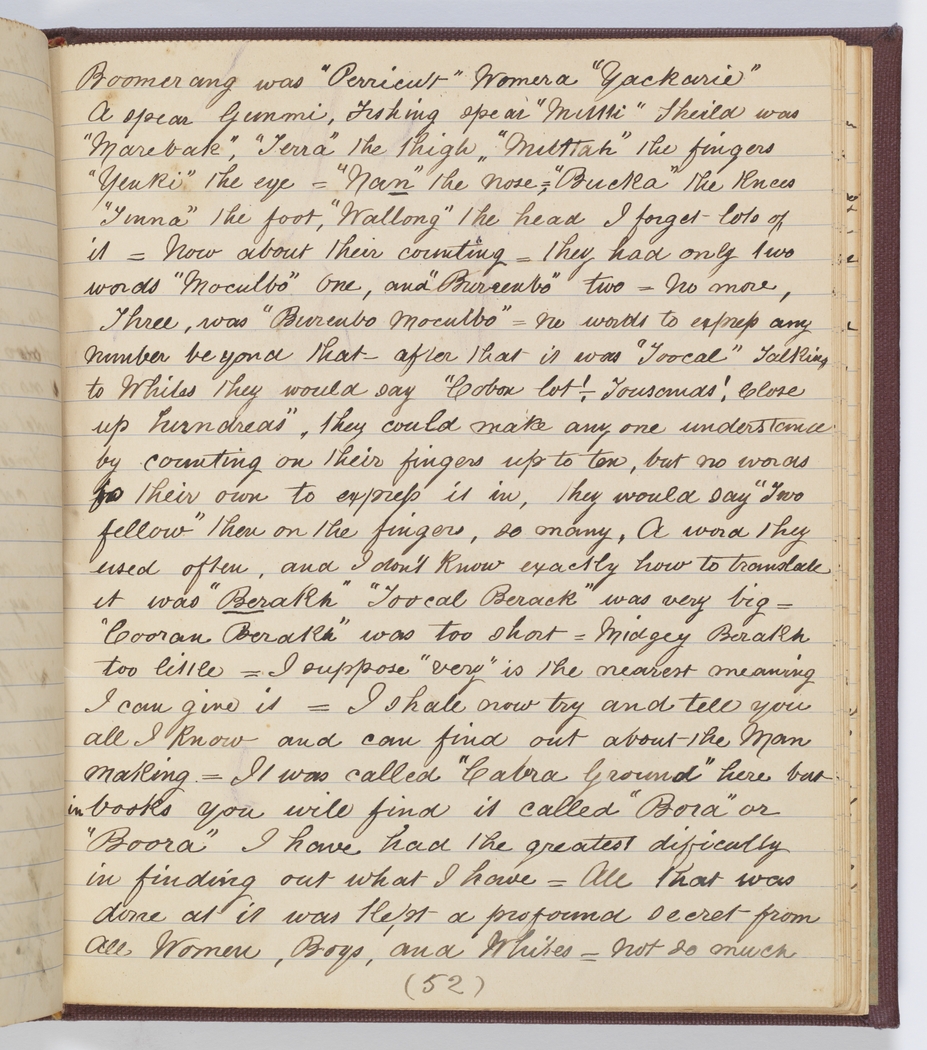 Boomerang was "Perricut" Womera "Yackarie"
A spear Gunmi, Fishing spear "Mutti" Sheild was
"Marebak", "Terra" the thigh "Muttah" the fingers
"Yenki" the eye = "Nan" the nose = "Bucka" the Knees
"Tinna" the foot, "Wallong" the head I forget lots of
it = Now about their counting = they had only two
words "Moculbo" One, and "Burcenbo" two = No more,
Three, was "Burenbo Moculbo" = no words to express any
number beyond that - after that it was "Toocal" Talking
to Whites they would say "Cobon lot! - Tousands! Close
up hundreds", they could make any one understand
by counting on their fingers up to ten, but no words
to their own to express it in, they would say "Two
fellow" then on the fingers, so many, A word they
used often, and I don't Know exactly how to translate
it was "Berakh" "Toocal Berack" was very big =
"Cooran Berakh" was too short = Midgey Berakh
too little = I suppose "very" is the nearest meaning
I can give it = I shall now try and tell you
all I Know and can find out about the Man
making = It was called "Cabra Ground" here but
in books you will find it called "Bora" or
"Boora" I have had the greatest dificully
in finding out what I have = All that was
done at it was Kept a profound secret from
All Women, Boys, and Whites = Not so much
(52)